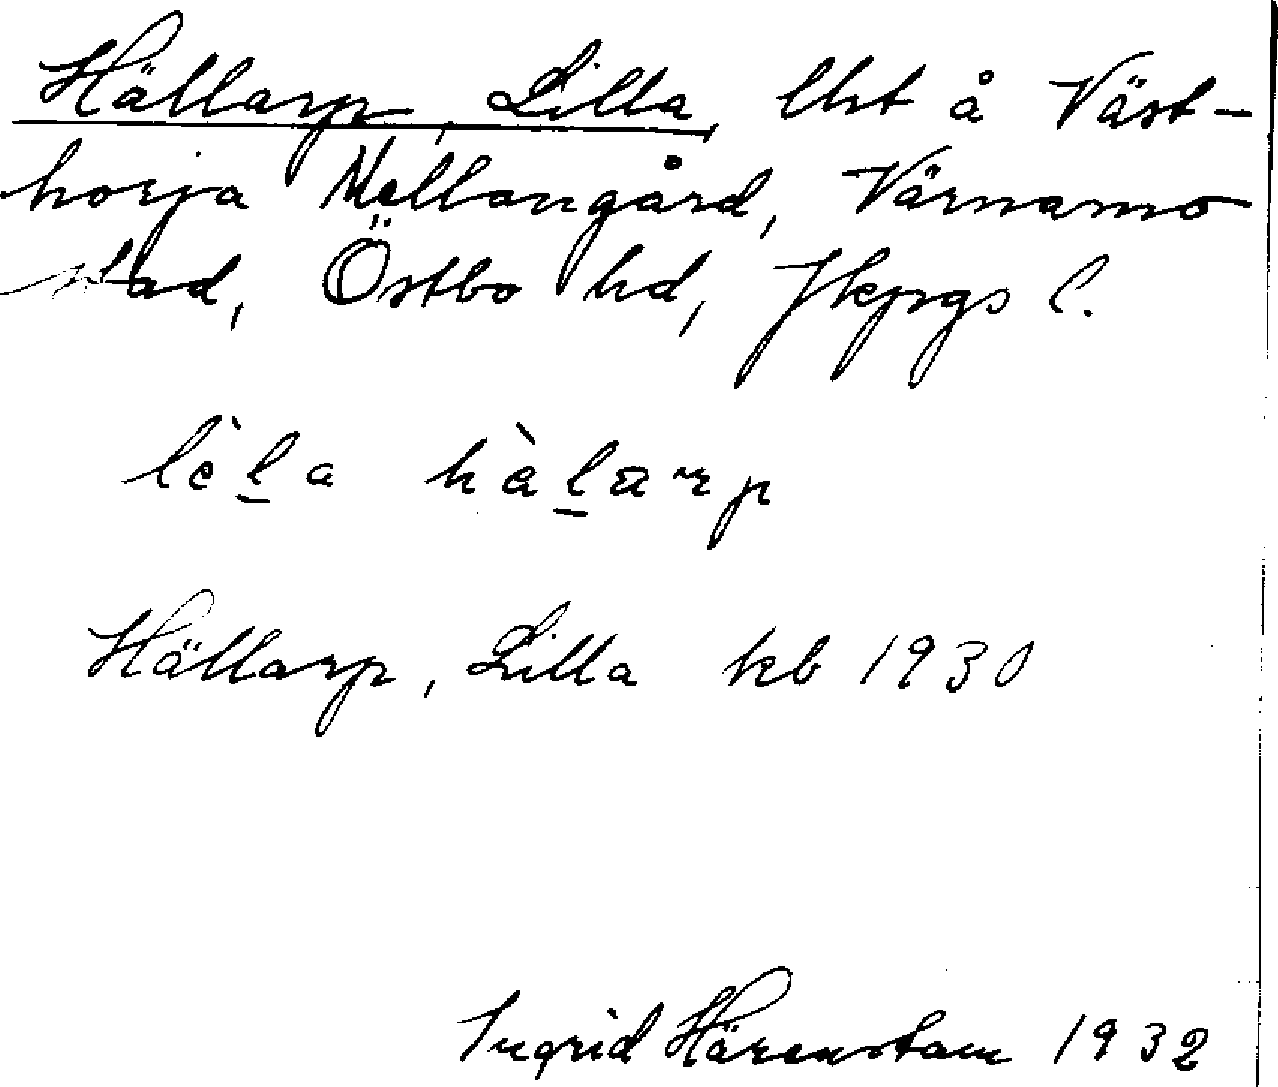 Hällarp, Lilla, lht å Väst-
horja Mellangård, Värnamo
stad, Östbo hd, Jkpgs l.
lèl̲a hàl̲arp
Hällarp, Lilla kb 1930
Ingrid Härenstam 1932